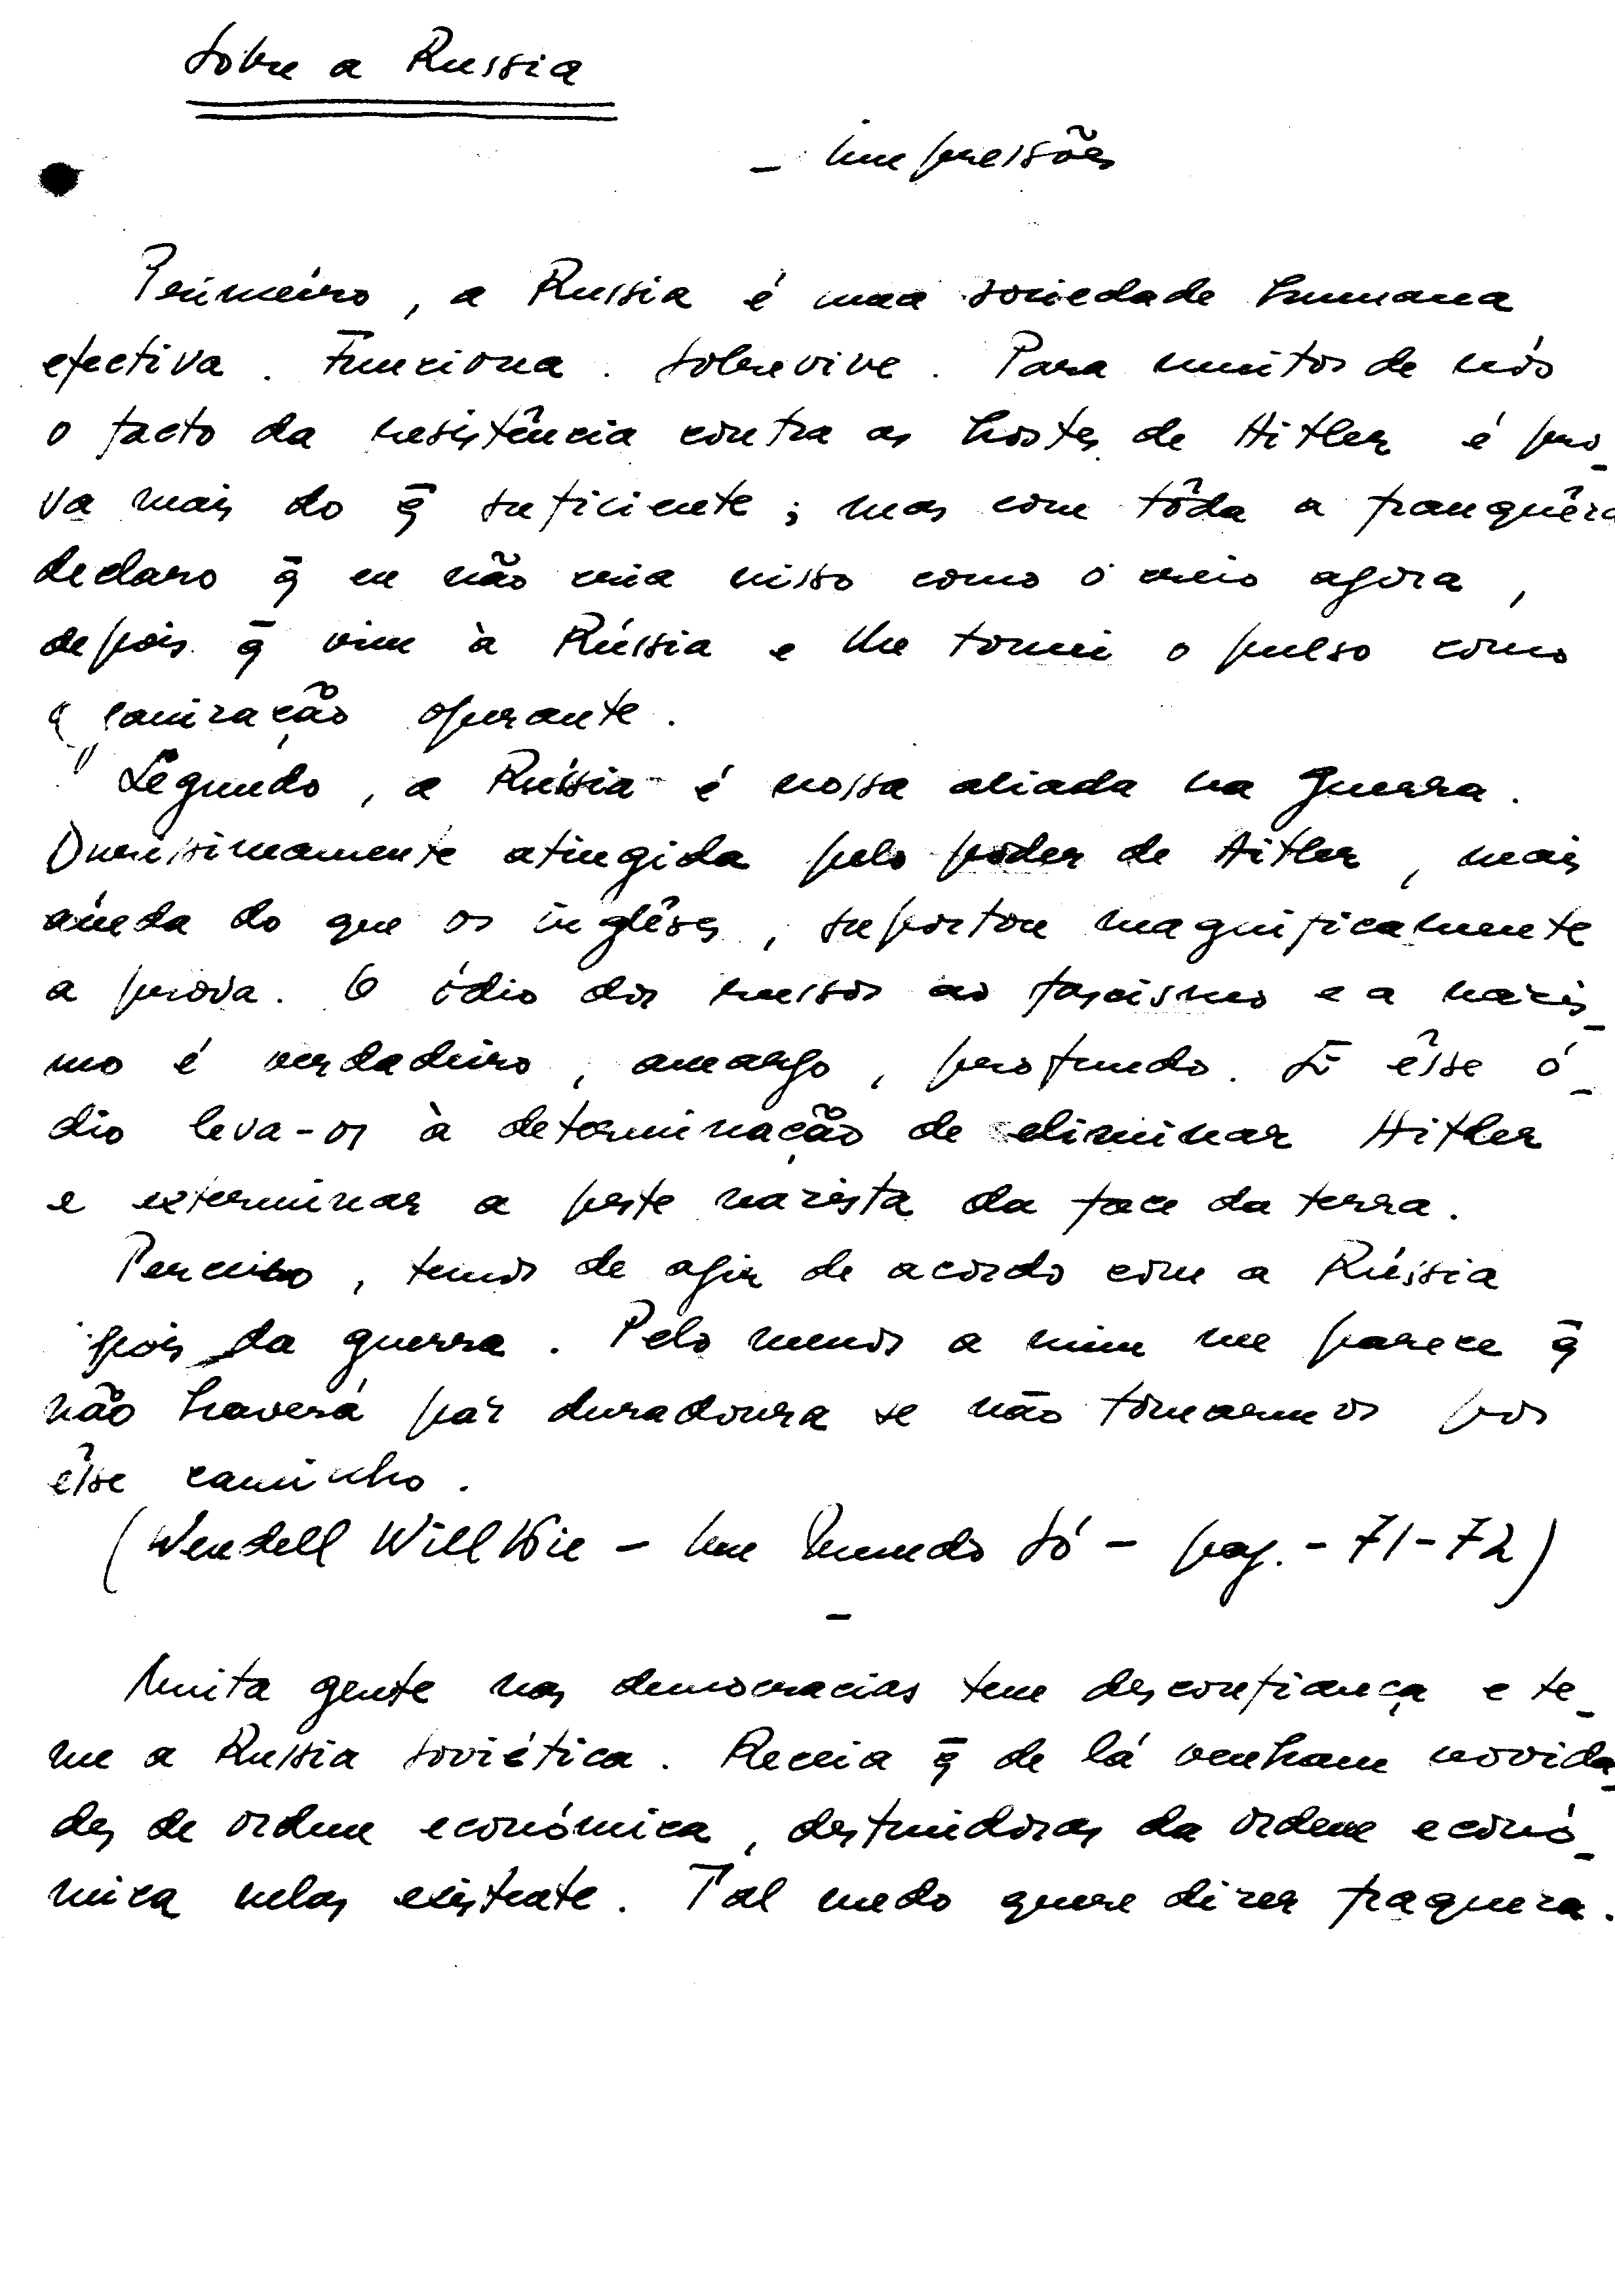 Sobre a Russia
- Impressões
Primeiro, a Russia é uma sociedade humana
efectiva. Funciona. Sobrevive. Para muitos de nós
o facto da resistência contra as hostes de Hitler é pro_
va mais do q̄ suficiente; mas com tôda a franquêza
declaro q̄ eu não cria nisso como o creio agora,
depois q̄ vim à Rússia e lhe tomei o pulso como
ganização operante.
Segundo, a Rússia é nossa aliada na guerra.
Durissimamente atingida pelo poder de Hitler, mais
ainda do que os inglêses, suportou magnificamente
a prova. O ódio dos russos ao fascismo e a nazis_
mo é verdadeiro, amargo, profundo. E êsse ó_
dio leva-os à determinação de eliminar Hitler
e exterminar a peste nazista da face da terra.
Terceiro, temos de agir de acordo com a Rússia
pois da guerra. Pelo menos a mim me parece q̄
não haverá paz duradoura se não tomarmos por
êsse caminho.
(Wendell Willkie - Um Mundo Só - pag. - 71-72)
-
Muita gente nas democracias tem desconfiança e te_
me a Russia soviética. Receia q̄ de lá venham novida_
des de ordem económica, destruidoras da ordem econó_
mica nelas existente. Tal medo quere dizer fraqueza.